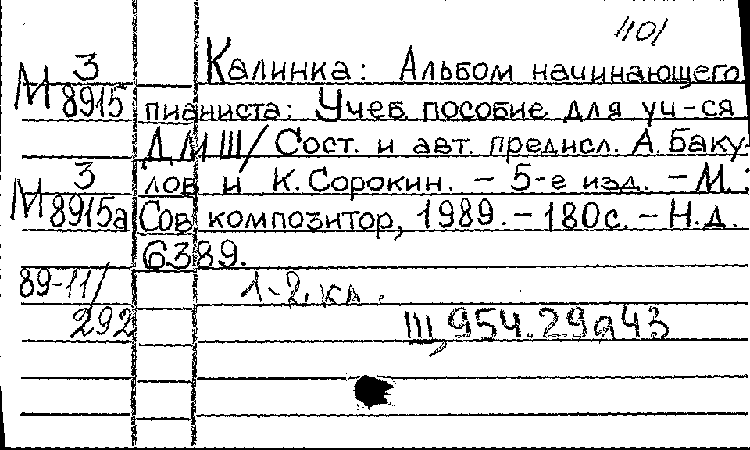 1101
М 3/8915 Калинка: Альбом начинающего
пианиста: Учеб пособие для уч-ся
ДМШ/ Сост. и авт. предисл. А. Баку-
М 3/8915а лов и К. Сорокин. – 5-е изд. – М.:
Сов композитор, 1989. – 180с. – Н.д.
6389.
89-11/292 1-2. кл.
Ш,954.29я43